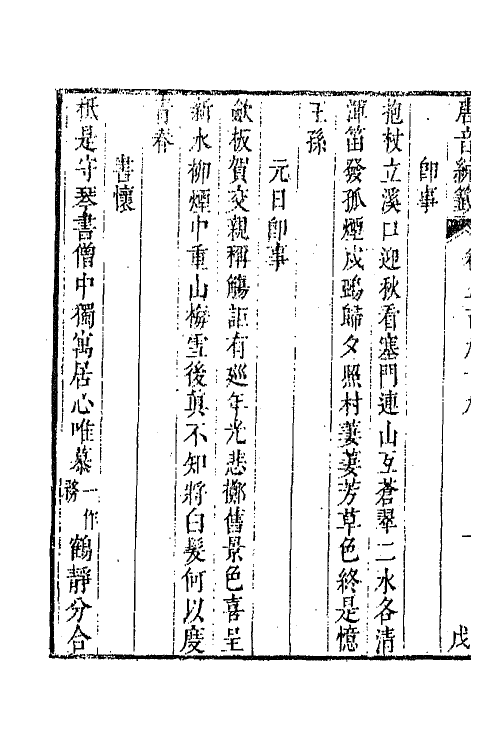 唐音統籤
戊
即事
抱杖立溪口迎秋看塞門連山互蒼翠二水各清
渾笛發孤煙戍鴉歸夕照村萋萋芳草色終是憶
王孫
元日即事
斂板賀交親稱觴詎有巡年光悲擲舊景色喜呈
新水柳煙中重山梅雪後真不知將白髮何以度
青春
書懷
秪是守琴書僧中獨寓居心唯慕一作務鶴靜分合